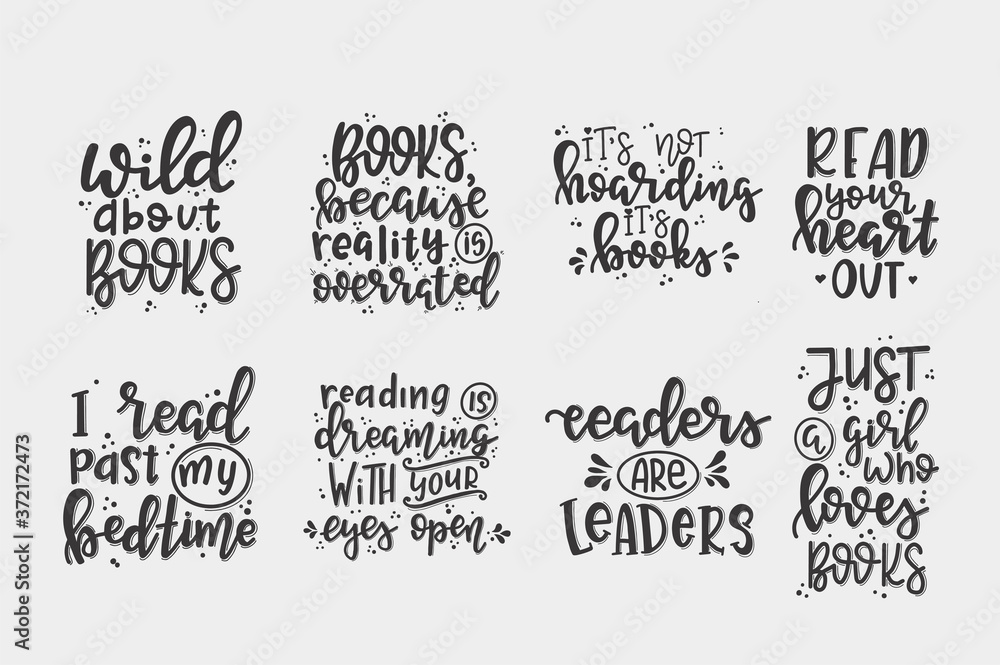 wild
about
BOOKS
BOOKS,
because
reality is
overrated
IT'S NOT
hoarding
IT'S
books
READ
your
heart
OUT
I read
past my
bedtime
reading is
dreaming
WITH YOUR
eyes open
readers
ARE
LEADERS
JUST
a girl
who
loves
BOOKS
Adobe Stock | #372172473